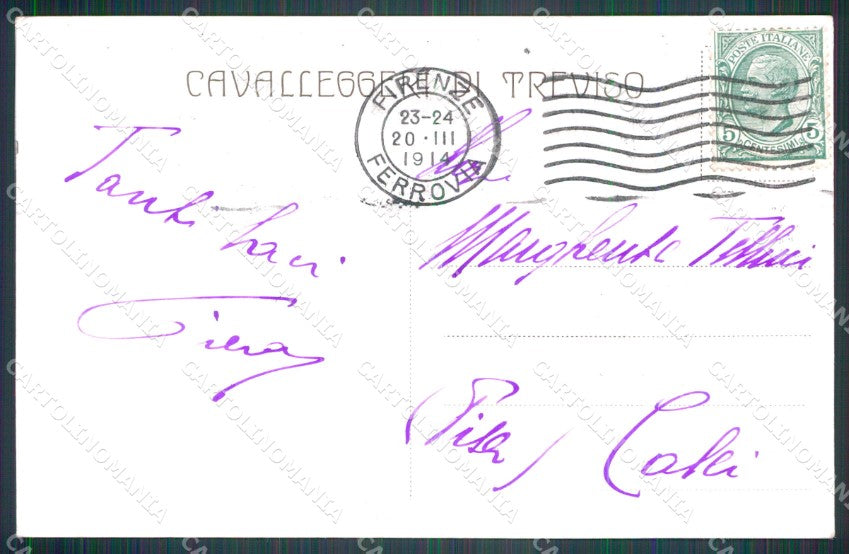 CAVALLEGGERI DI TREVISO
FIRENZE
23-24
20·III
1914
FERROVIA
POSTE ITALIANE
5 5
CENTESIMI
Tanti baci
Margherita
(Pisa) Calci
CARTOLINOMANIA